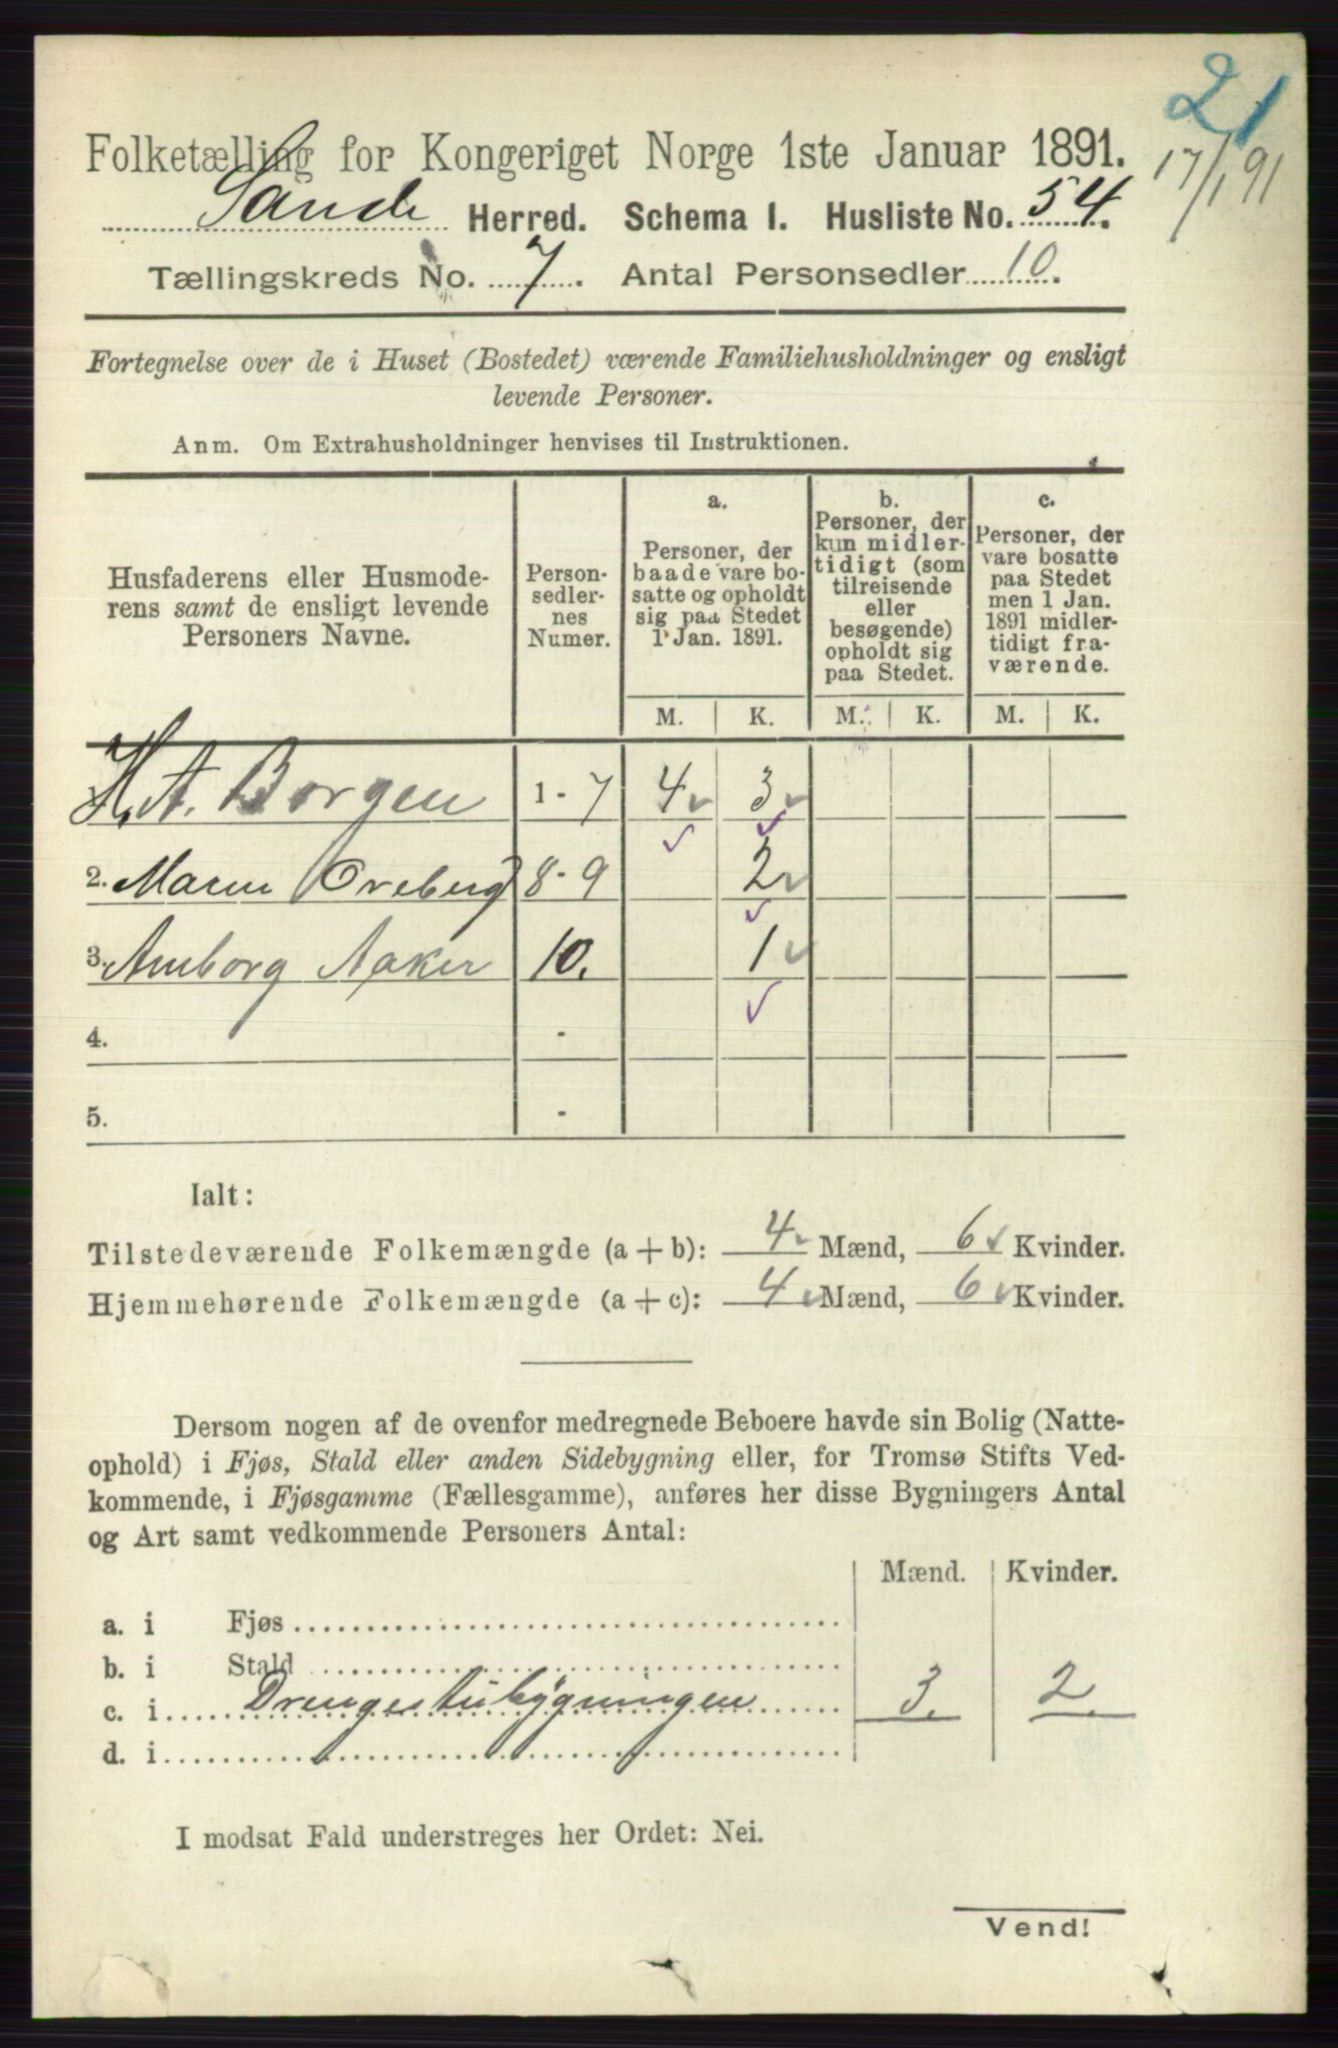 21
17/1 91
Folketælling for Kongeriget Norge 1ste Januar 1891.
Sande Herred. Schema 1. Husliste No. 54.
Tællingskreds No. 7. Antal Personsedler 10.
Fortegnelse over de i Huset (Bostedet) værende Familiehusholdninger og ensligt
levende Personer.
Anm. Om Extrahusholdninger henvises til Instruktionen.
Husfaderens eller Husmode-
rens samt de ensligt levende
Personers Navne.
Person-
sedler-
nes
Numer.
a.
Personer, der
baade vare bo-
satte og opholdt
sig paa Stedet
1 Jan. 1891.
b.
Personer, der
kun midler-
tidigt (som
tilreisende
eller
besøgende)
opholdt sig
paa Stedet.
c.
Personer, der
vare bosatte
paa Stedet
men 1 Jan.
1891 midler-
tidigt fra-
værende.
M. K. M. K. M. K.
H. A. Borgen 1 - 7 4 3
2. Maren Oreberg 8 - 9 2
3. Anborg Aaker 10. 1
4. -
5. -
Ialt:
Tilstedeværende Folkemængde (a + b): 4 Mænd, 6 Kvinder.
Hjemmehørende Folkemængde (a + c): 4 Mænd, 6 Kvinder.
Dersom nogen af de ovenfor medregnede Beboere havde sin Bolig (Natte-
ophold) i Fjøs, Stald eller anden Sidebygning eller, for Tromsø Stifts Ved-
kommende, i Fjøsgamme (Fællesgamme), anføres her disse Bygningers Antal
og Art samt vedkommende Personers Antal:
Mænd. Kvinder.
a. i Fjøs
b. i Stald
c. i Drengestubygningen 3. 2.
d. i
I modsat Fald understreges her Ordet: Nei.
Vend!